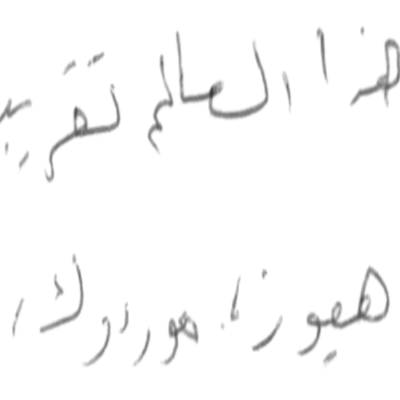 هذا العالم تقريبا
هيوز، موردوك،